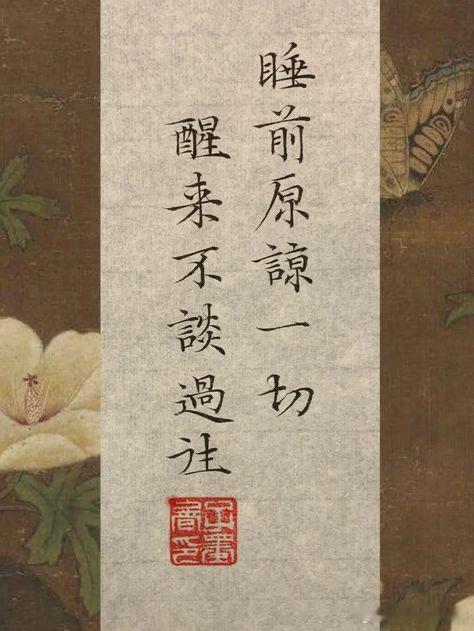 睡前原諒一切
醒来不談過往